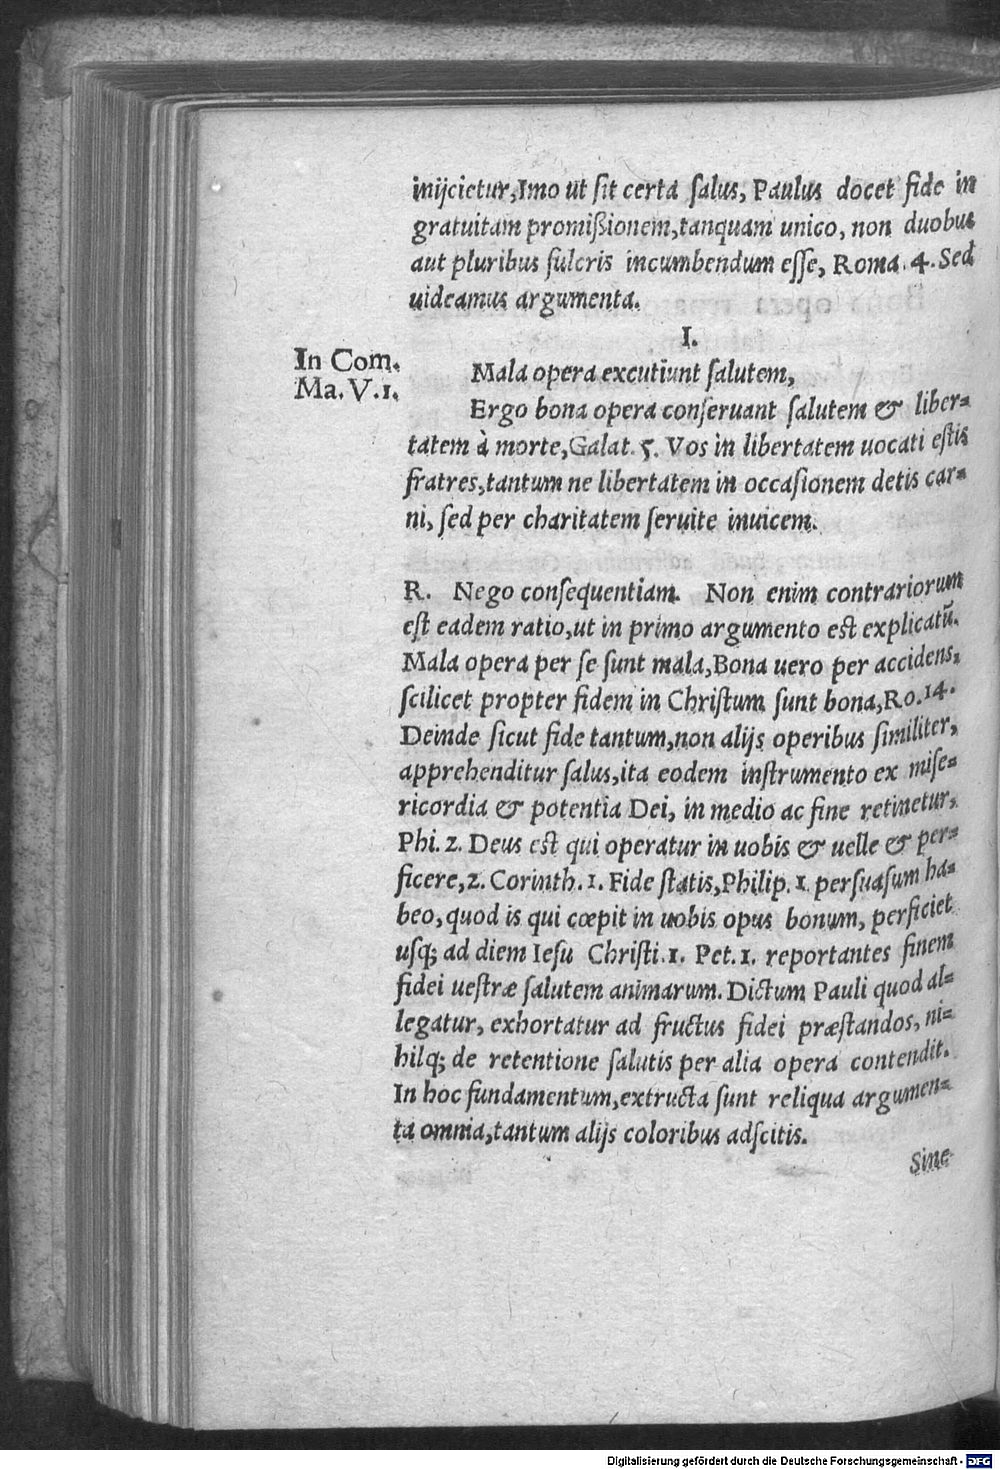 inijcietur, Imo ut sit certa salus, Paulus docet fide in
gratuitam promißionem, tanquam unico, non duobus
aut pluribus fulcris incumbendum esse, Roma. 4. Sed
uideamus argumenta.
I.
In Com.
Ma. V. 1.
Mala opera excutiunt salutem,
Ergo bona opera conseruant salutem & liber-
tatem à morte, Galat. 5. Vos in libertatem uocati estis
fratres, tantum ne libertatem in occasionem detis car-
ni, sed per charitatem seruite inuicem.
R. Nego consequentiam. Non enim contrariorum
est eadem ratio, ut in primo argumento est explicatū.
Mala opera per se sunt mala, Bona uero per accidens,
scilicet propter fidem in Christum sunt bona, Ro. 14.
Deinde sicut fide tantum, non alijs operibus similiter,
apprehenditur salus, ita eodem instrumento ex mise-
ricordia & potentia Dei, in medio ac fine retinetur,
Phi. 2. Deus est qui operatur in uobis & uelle & per-
ficere, 2. Corinth. 1. Fide statis, Philip. 1 persuasum ha-
beo, quod is qui cœpit in uobis opus bonum, perficiet
usq; ad diem Iesu Christi. 1. Pet. 1. reportantes finem
fidei uestræ salutem animarum. Dictum Pauli quod al-
legatur, exhortatur ad fructus fidei præstandos, ni-
hilq; de retentione salutis per alia opera contendit.
In hoc fundamentum, extructa sunt reliqua argumen-
ta omnia, tantum alijs coloribus adscitis.
Sine
Digitalisierung gefördert durch die Deutsche Forschungsgemeinschaft - DFG